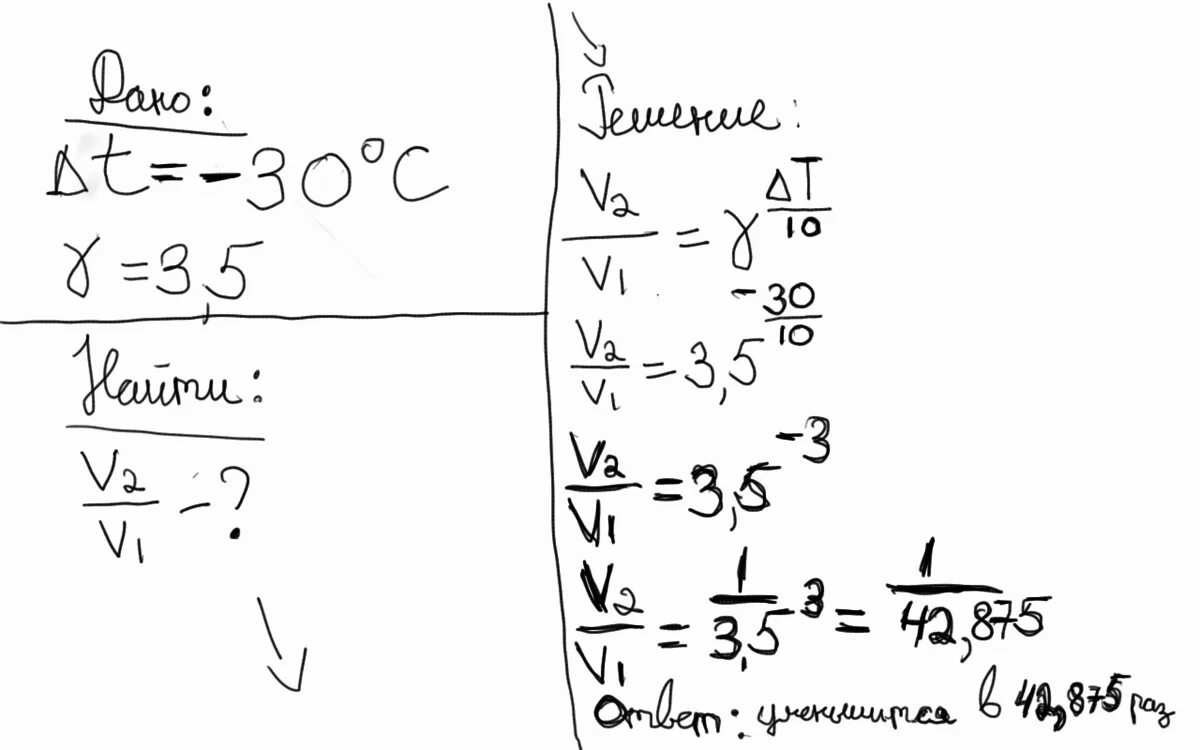 Дано:
Δt=-30°C
γ=3,5
Найти:
V₂/V₁ -?
Решение:
V₂/V₁ = γ^(ΔT/10)
V₂/V₁ = 3,5^(-30/10)
V₂/V₁ = 3,5^(-3)
V₂/V₁ = 1/3,5^(-3) = 1/42,875
Ответ: уменьшится в 42,875 раз